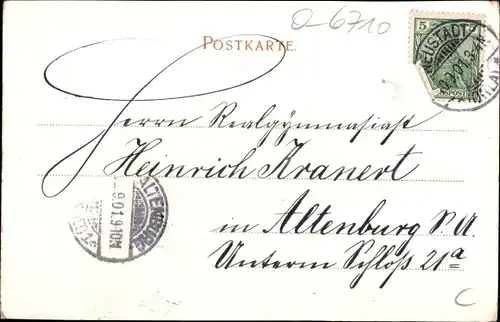 O-6710
POSTKARTE.
5
NEUSTADT
Herrn Realgymnasiast
Heinrich Kranert
in Altenburg S. A.
Unterm Schloß 21a
ALTENBURG
9.01.9-10N
C